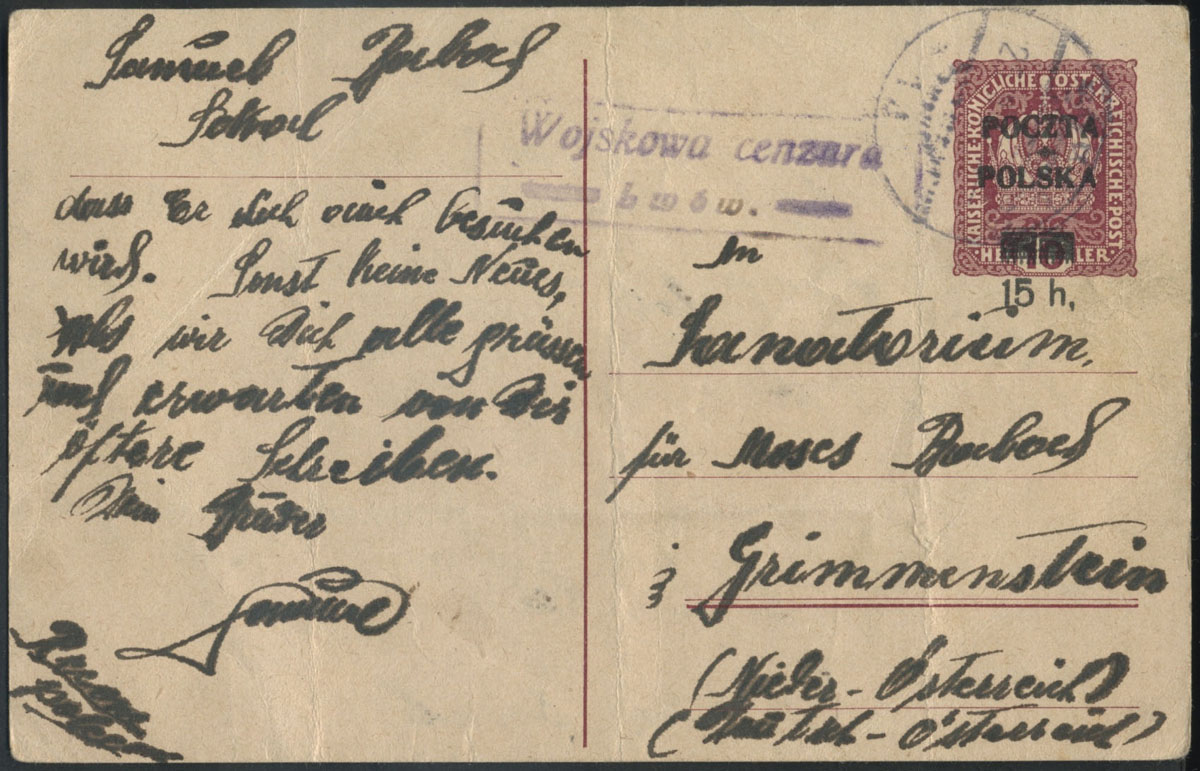 Samuel
dass Er dich auch besuchen
wird. Sonst keine Neues,
als wir Dich alle grüssen
und erwarten von Dir
öftere Schreiben.
Dein Bruder
Samuel
Wojskowa cenzura
Lwów.
KAISERLICHE KÖNIGLICHE ÖSTERREICHISCHE POST
POCZTA
POLSKA
10
15 h.
An
Sanatorium,
für Moses
Grimmenstein
(Nieder-Österreich)
(Deutsch-Österreich)